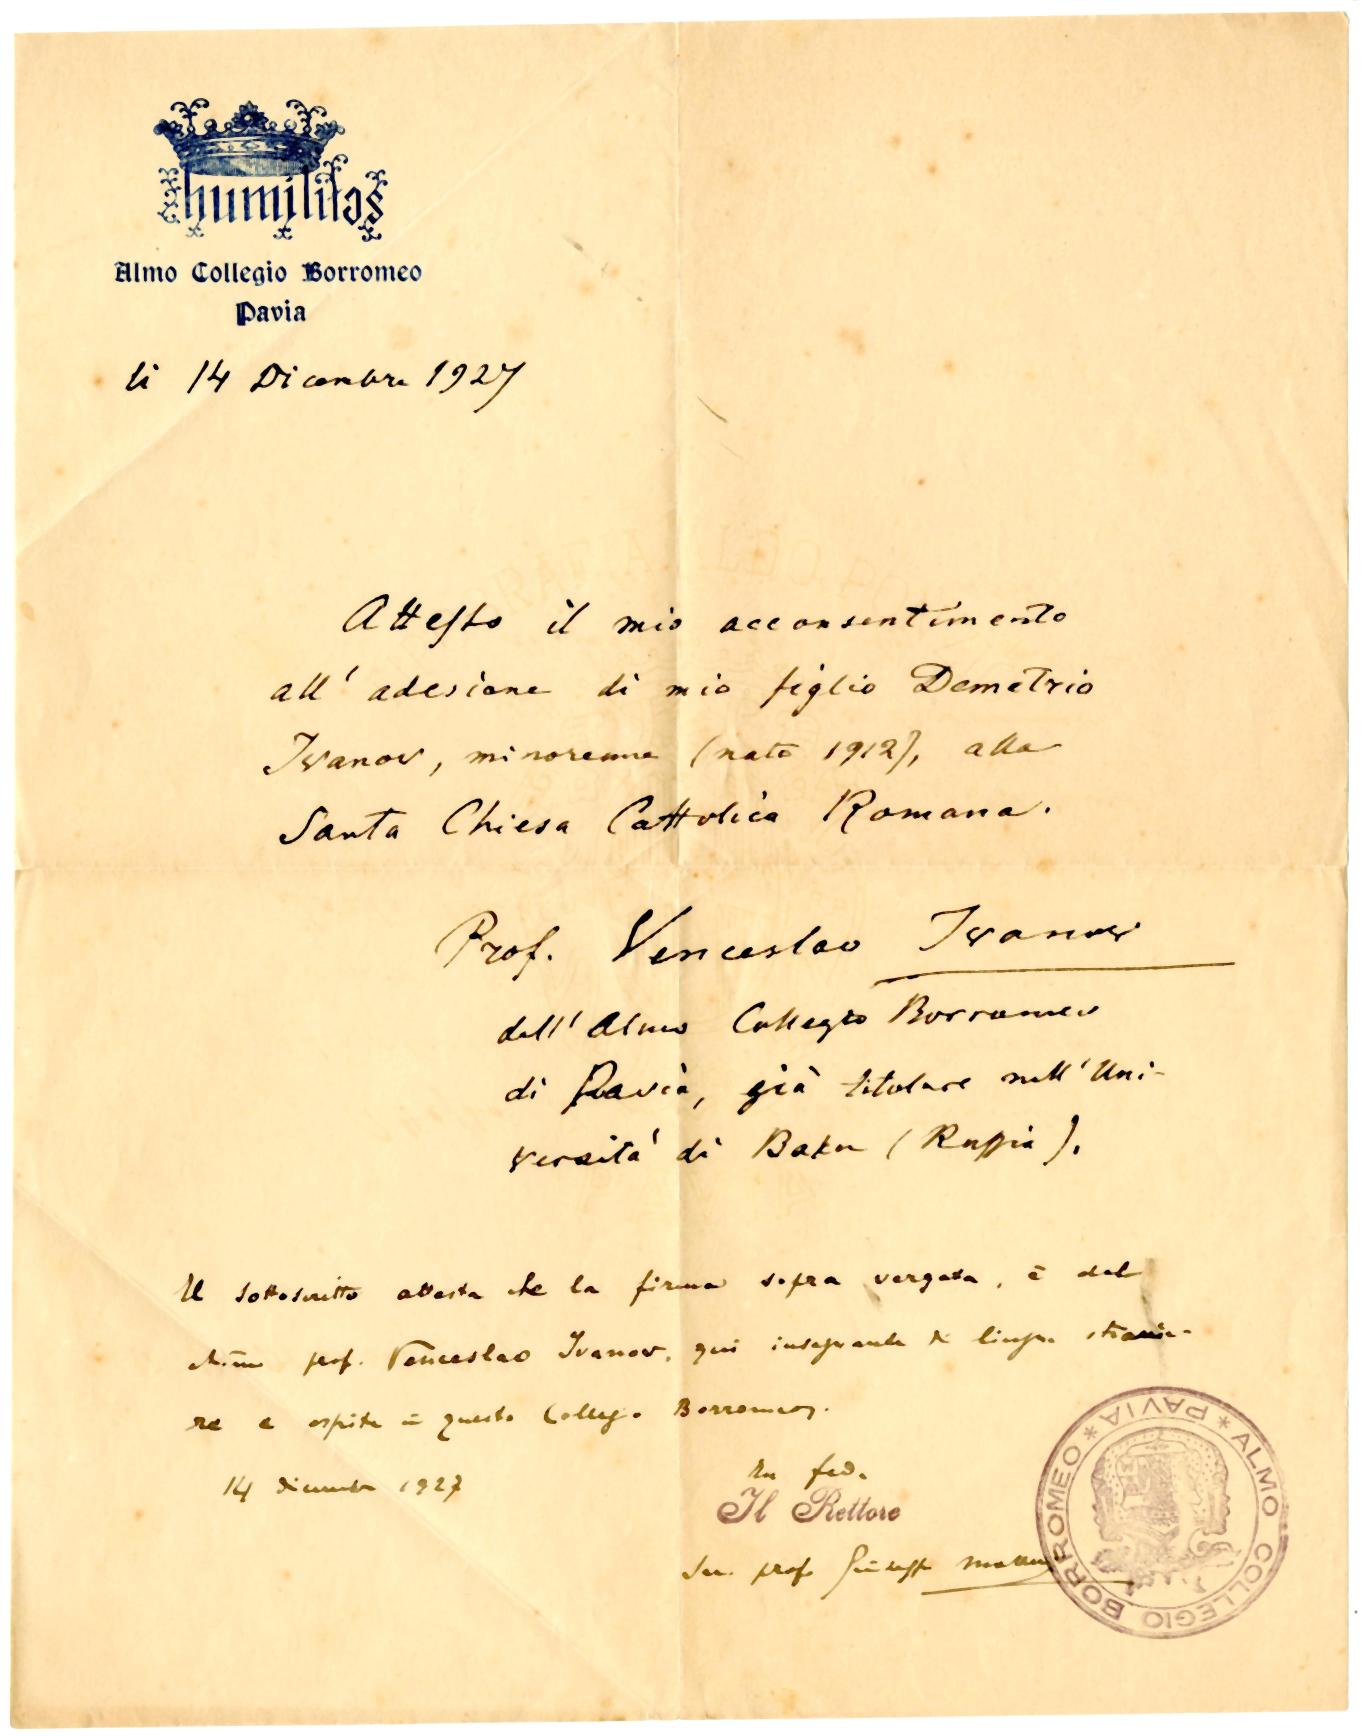 humilitas
Almo Collegio Borromeo
Pavia
li 14 Dicembre 1927
Attesto il mio acconsentimento
all' adesione di mio figlio Demetrio
Ivanov, minorenne (nato 1912), alla
Santa Chiesa Cattolica Romana.
Prof. Venceslao Ivanov
dell' Almo Collegio Borromeo
di Pavia, già titolare nell' Uni-
versità di Baku (Russia).
Il sottoscritto attesta che la firma sopra vergata, è del
prof. Venceslao Ivanov, qui insegnante di lingue stranie-
re e ospite in questo Collegio Borromeo.
14 dicembre 1927
In fede
Il Rettore
prof. Giuseppe
* ALMO COLLEGIO BORROMEO * PAVIA